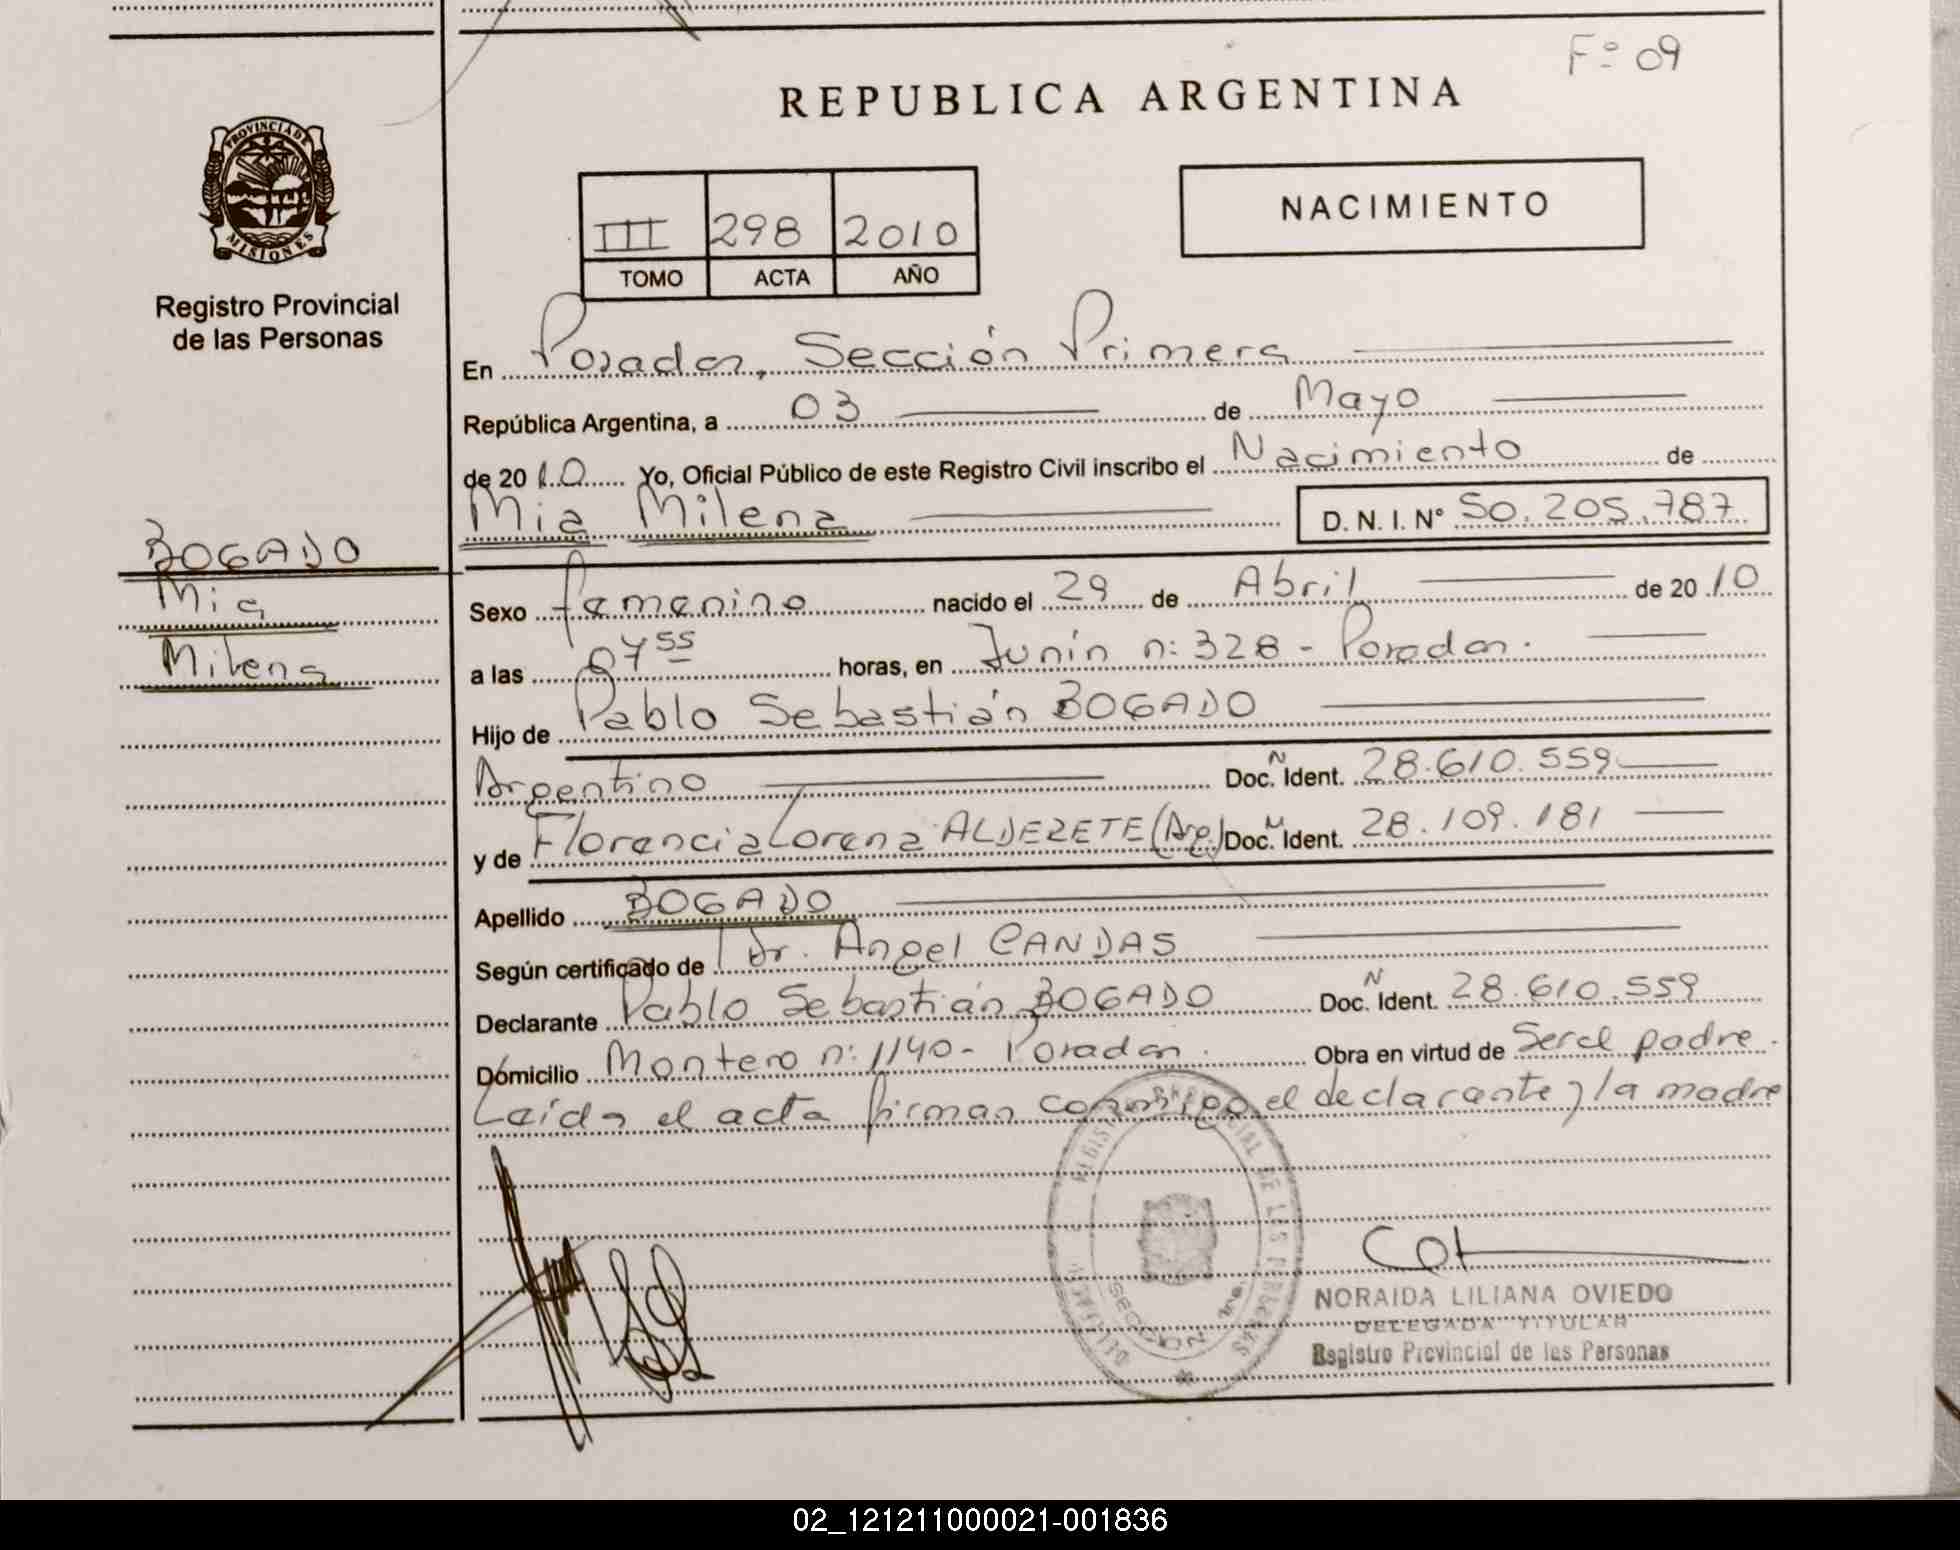 Fº 09
REPUBLICA ARGENTINA
PROVINCIA DE
MISIONES
Registro Provincial
de las Personas
III 298 2010
TOMO ACTA AÑO
NACIMIENTO
En Posadas, Sección Primera
República Argentina, a 03 de Mayo
de 2010 Yo, Oficial Público de este Registro Civil inscribo el Nacimiento de
Mia Milena D. N. I. Nº 50.205.787
BOGADO
Mia
Milena
Sexo femenino nacido el 29 de Abril de 2010
a las 07 55 horas, en Junín n: 328 - Posadas.
Hijo de Pablo Sebastián BOGADO
Argentino Doc. N Ident. 28.610.559
y de Florencia Lorena ALDERETE (Arg.) Doc. N Ident. 28.109.181
Apellido BOGADO
Según certificado de Dr. Angel CANDAS
Declarante Pablo Sebastián BOGADO Doc. N Ident. 28.610.559
Domicilio Montero n: 1140 - Posadas. Obra en virtud de Ser el padre.
Leída el acta firman conmigo el declarante y la madre
REGISTRO PROVINCIAL DE LAS PERSONAS
SECCION 1ra.
NORAIDA LILIANA OVIEDO
DELEGADA TITULAR
Registro Provincial de las Personas
02_121211000021-001836